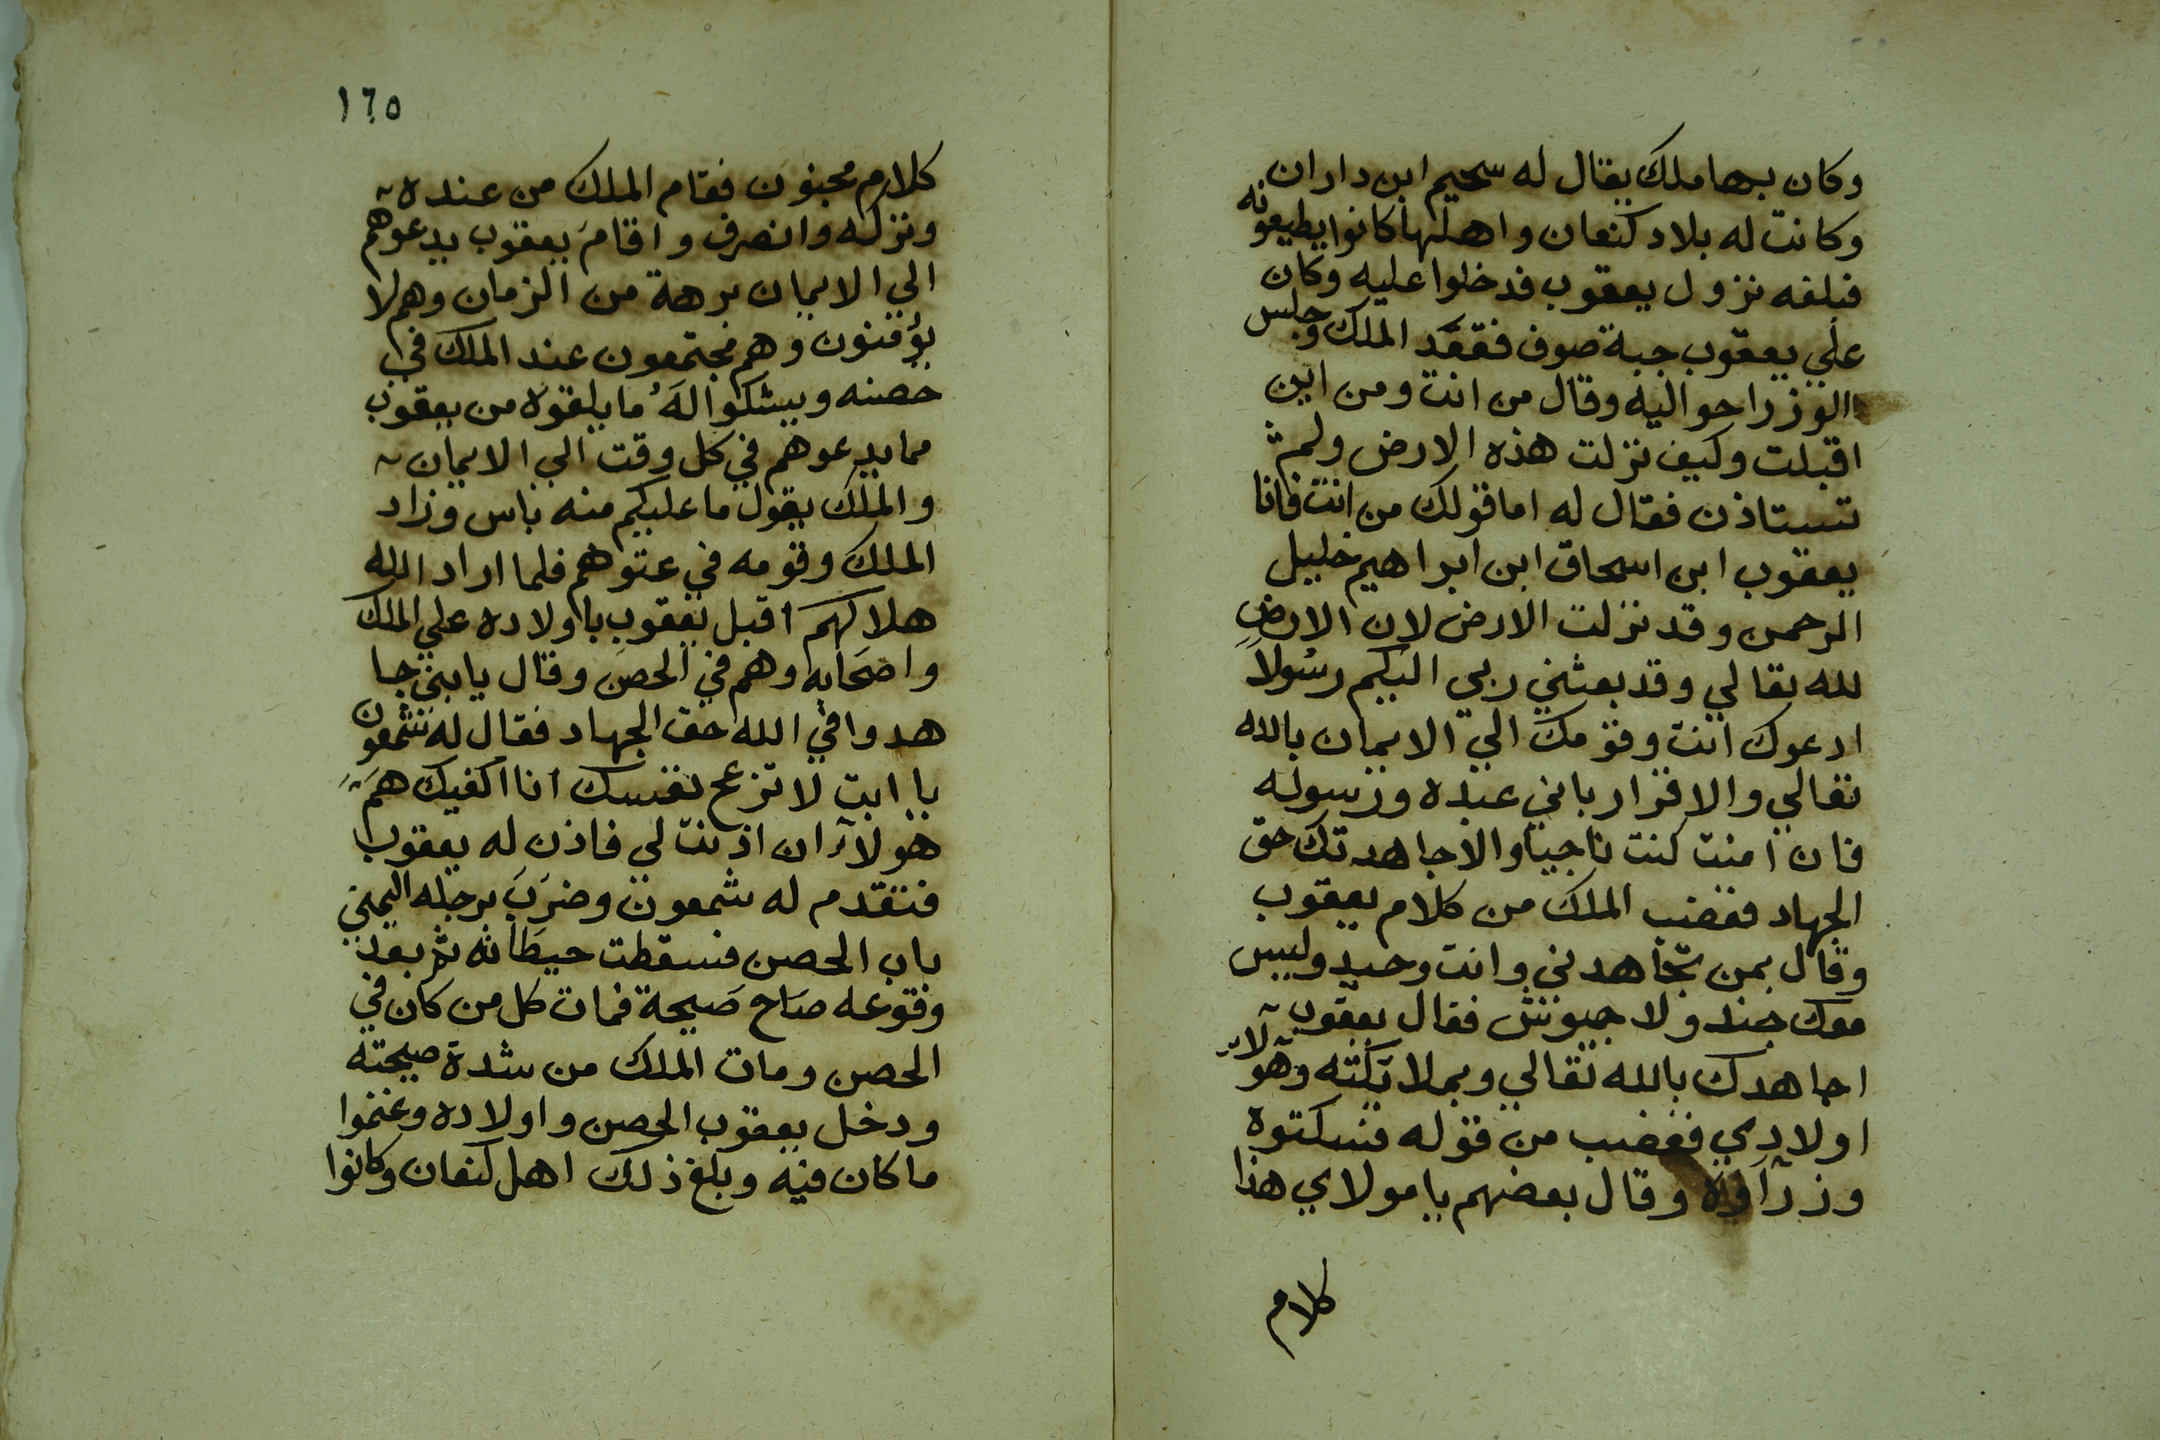 وكان بها ملك يقال له سحيم ابن داران
وكانت له بلاد كنعان واهلها كانوا يطيعونه
فبلغه نزول يعقوب فدخلوا عليه وكان
علي يعقوب جبة صوف فقعد الملك وجلس
الوزرا حواليه وقال من انت ومن اين
اقبلت وكيف نزلت هذه الارض ولم
تستاذن فقال له اما قولك من انت فانا
يعقوب ابن اسحاق ابن ابراهيم خليل
الرحمن وقد نزلت الارض لان الارض
لله تعالي وقد بعثني ربي اليكم رسولا
ادعوك انت وقومك الي الايمان بالله
تعالي والاقرار باني عبده ورسوله
فان امنت كنت ناجيا والا جاهدتك حق
الجهاد فغضب الملك من كلام يعقوب
وقال بمن تجاهدني وانت وحيد وليس
معك جند ولا جيوش فقال يعقوب
اجاهدك بالله تعالي وبملائكته وهولاء
اولادي فغضب من قوله فسكتوه
وزرآوه وقال بعضهم يا مولاي هذا
كلام
١٦٥
كلام مجنون فقام الملك من عنده
ونزله وانصرف واقام يعقوب يدعوهم
الي الايمان برهة من الزمان وهم لا
يؤمنون وهم مجتمعون عند الملك في
حصنه ويشكوا له ما يلقوه من يعقوب
مما يدعوهم في كل وقت الي الايمان
والملك يقول ما عليكم منه باس وزاد
الملك وقومه في عتوهم فلما اراد الله
هلاكهم اقبل يعقوب باولاده علي الملك
واصحابه وهم في الحصن وقال يا بني جا
هدوا في الله حق الجهاد فقال له شمعون
يا ابت لا تزعج نفسك انا اكفيك هم
هولآء ان اذنت لي فاذن له يعقوب
فتقدم له شمعون وضرب برجله اليمني
باب الحصن فسقطت حيطانه ثم بعد
وقوعه صاح صيحة فمات كل من كان في
الحصن ومات الملك من شدة صيحته
ودخل يعقوب الحصن واولاده وغنموا
ما كان فيه وبلغ ذلك اهل كنعان وكانوا